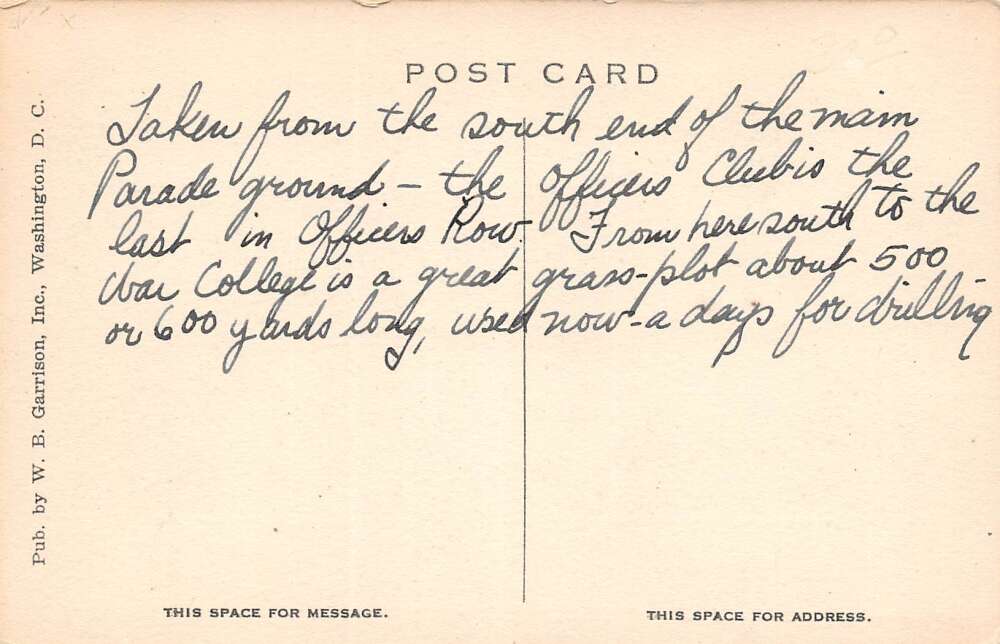 POST CARD
Taken from the south end of the main
Parade ground – the Officers Club is the
last in Officers Row. From here south to the
War College is a great grass-plot about 500
or 600 yards long, used now-a days for drilling
Pub. by W. B. Garrison, Inc., Washington, D. C.
THIS SPACE FOR MESSAGE.
THIS SPACE FOR ADDRESS.